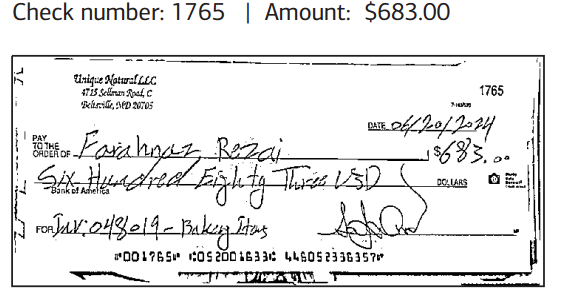 Check number: 1765 | Amount: $683.00
Unique Natural LLC
4715 Sellman Road, C
Beltsville, MD 20705
1765
DATE 06/20/2024
PAY TO THE ORDER OF Farahnaz Rezai $683.00
Six Hundred Eighty Three USD DOLLARS
Bank of America
FOR Inv: 048019 - Bakery Itms
⑈001765⑈ ⑆052001633⑆ 446052336357⑈